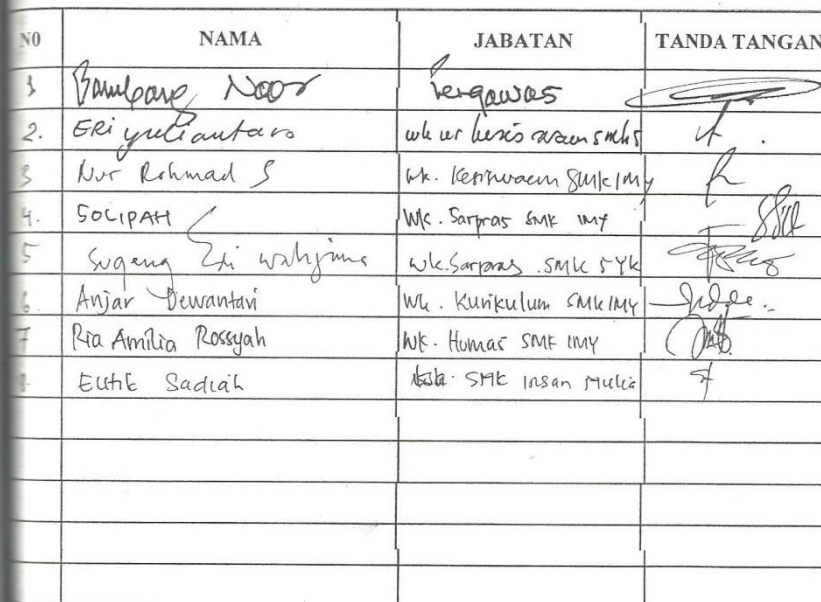 NO NAMA JABATAN TANDA TANGAN
1 Bambang Noor Pengawas
2. ERi yuliantoro wk ur kesiswaan smk 5
3 Nur Rohmad S wk. Kesiswaan SMK IMY
4. SOLIPAH Wk. Sarpras SMK IMY
5 Sugeng Tri wk. Sarpras SMK 5 YK
6 Anjar Dewantari Wk. Kurikulum SMK IMY
7 Ria Amilia Rossyah Wk. Humas SMK IMY
8. Sadiah SMK Insan Mulia